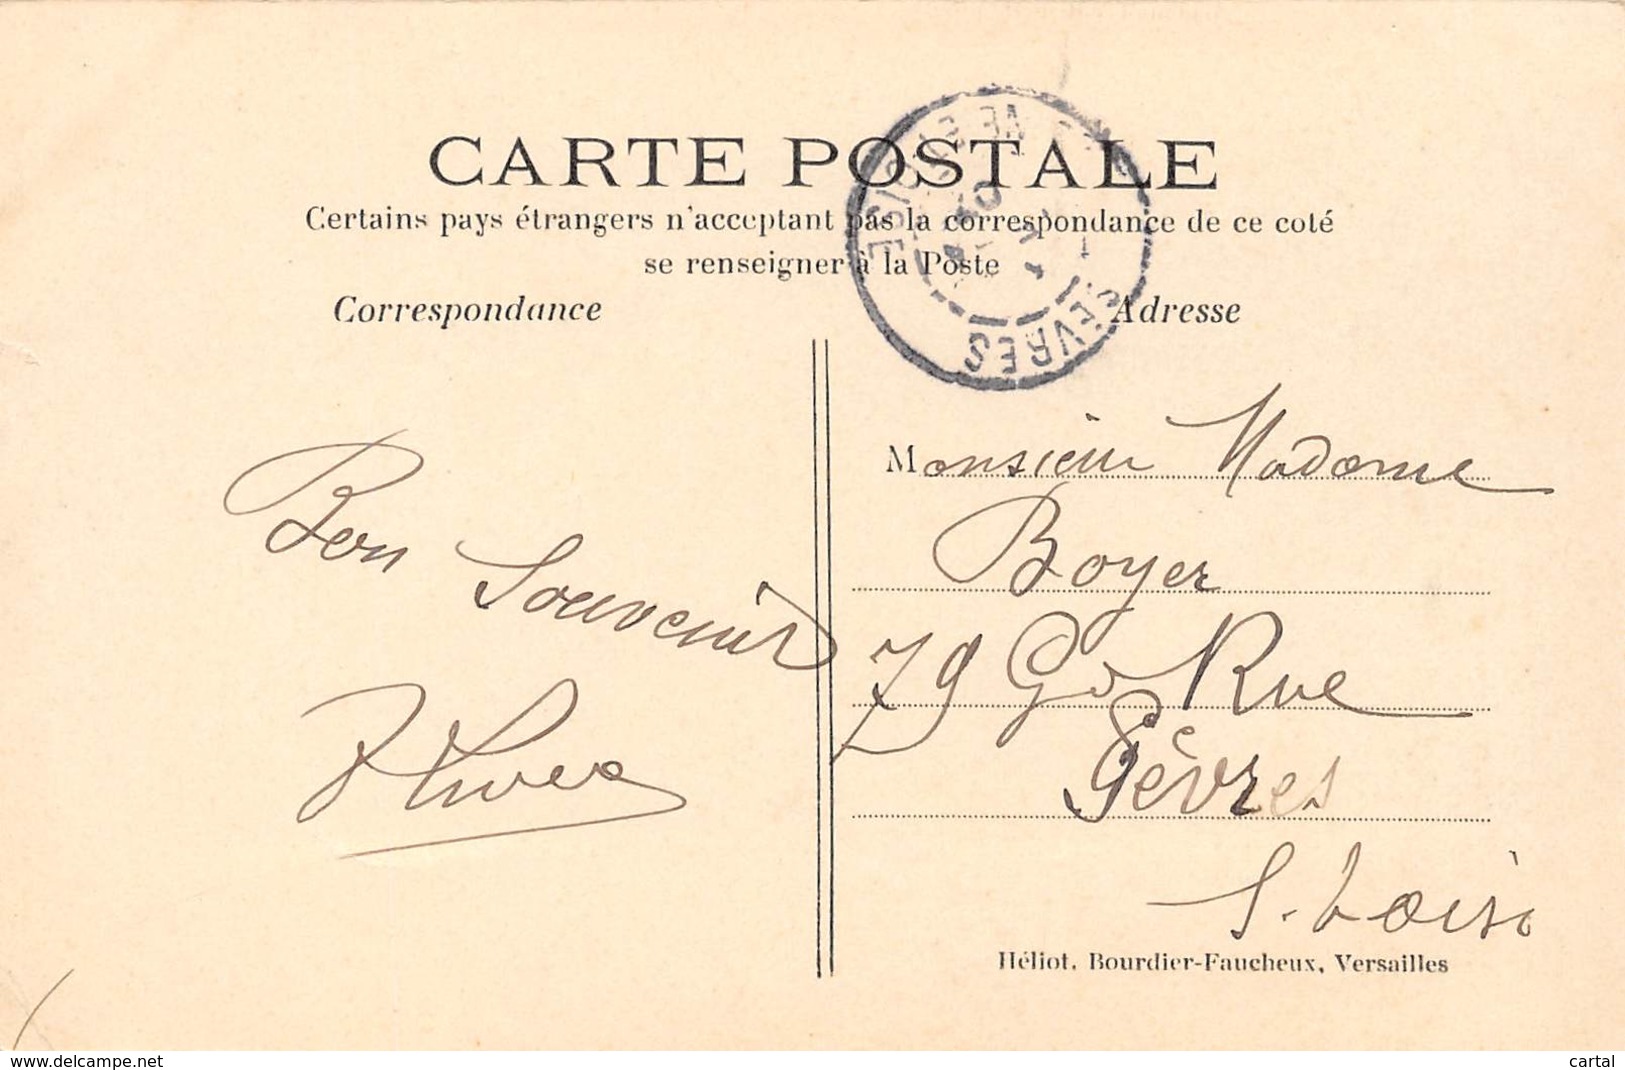 CARTE POSTALE
Certains pays étrangers n'acceptant pas la correspondance de ce coté
se renseigner à la Poste
Correspondance
Adresse
SÈVRES
Bon Souvenir
Monsieur Madame
Boyer
79 Gde Rue
Sèvres
S. & Oise
Héliot. Bourdier-Faucheux, Versailles
www.delcampe.net
cartal